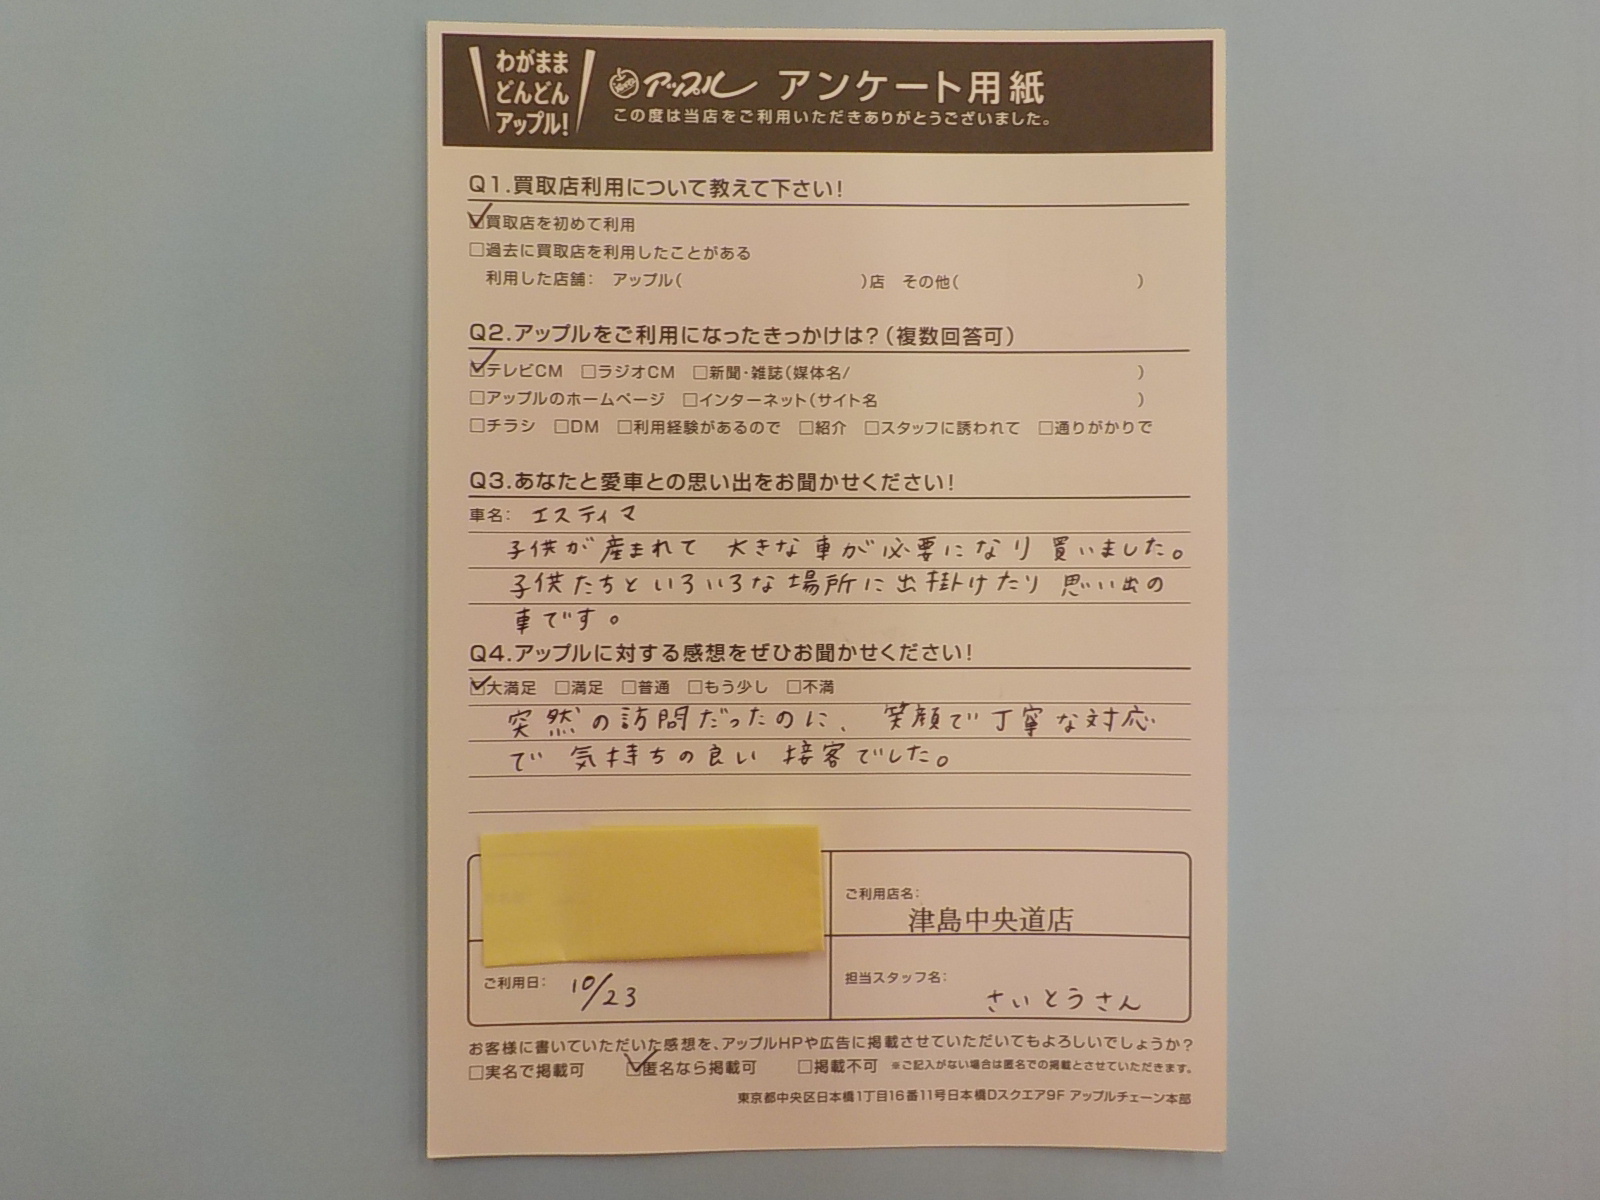 わがまま
どんどん
アップル!
アップル アンケート用紙
この度は当店をご利用いただきありがとうございました。
Q1.買取店利用について教えて下さい!
☑買取店を初めて利用
□過去に買取店を利用したことがある
利用した店舗: アップル( )店 その他( )
Q2.アップルをご利用になったきっかけは?(複数回答可)
☑テレビCM □ラジオCM □新聞・雑誌(媒体名/ )
□アップルのホームページ □インターネット(サイト名 )
□チラシ □DM □利用経験があるので □紹介 □スタッフに誘われて □通りがかりで
Q3.あなたと愛車との思い出をお聞かせください!
車名: エスティマ
子供が産まれて 大きな車が必要になり 買いました。
子供たちといろいろな場所に出掛けたり 思い出の
車です。
Q4.アップルに対する感想をぜひお聞かせください!
☑大満足 □満足 □普通 □もう少し □不満
突然の訪問だったのに、笑顔で丁寧な対応
で 気持ちの良い 接客でした。
ご利用店名:
津島中央道店
ご利用日: 10/23
担当スタッフ名:
さいとうさん
お客様に書いていただいた感想を、アップルHPや広告に掲載させていただいてもよろしいでしょうか?
□実名で掲載可 ☑匿名なら掲載可 □掲載不可 ※ご記入がない場合は匿名での掲載とさせていただきます。
東京都中央区日本橋1丁目16番11号日本橋Dスクエア9F アップルチェーン本部